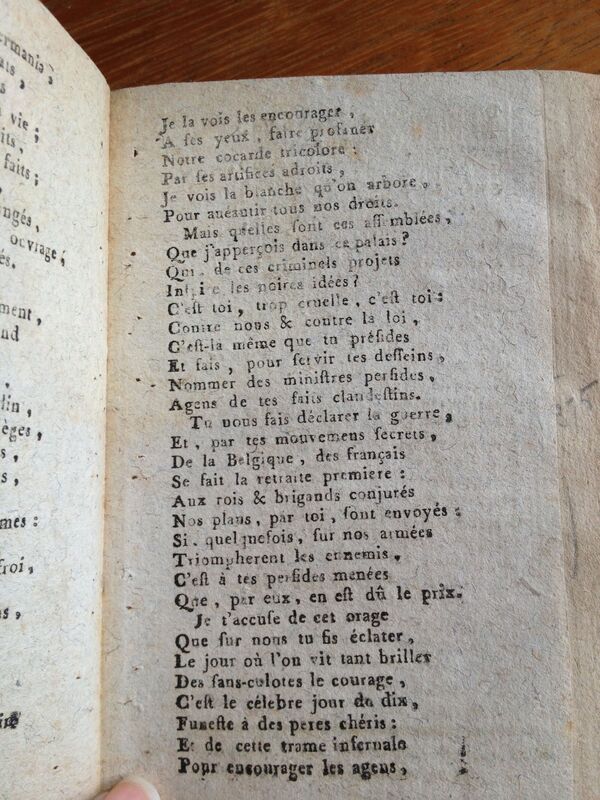 ermanie,
ats,
s
vie;
its,
faits;
ngés,
ouvrage;
és.
ment,
nd
lin,
èges,
s,
s,
mes :
froi,
s,
Je la vois les encourager,
A ſes yeux, faire profaner
Notre cocarde tricolore :
Par ſes artifices adroits,
Je vois la blanche qu'on arbore,
Pour anéantir tous nos droits.
Mais quelles ſont ces aſſemblées,
Que j'apperçois dans ce palais ?
Qui, de ces criminels projets
Inſpire les noires idées ?
C'eſt toi, trop cruelle, c'eſt toi :
Contre nous & contre la loi,
C'eſt-la même que tu préſides
Et fais, pour ſervir tes deſſeins,
Nommer des miniſtres perfides,
Agens de tes faits clandeſtins.
Tu nous fais déclarer la guerre,
Et, par tes mouvemens ſecrets,
De la Belgique, des français
Se fait la retraite premiere :
Aux rois & brigands conjurés
Nos plans, par toi, ſont envoyés :
Si, quelquefois, ſur nos armées
Triompherent les ennemis,
C'eſt à tes perfides menées
Que, par eux, en eſt dû le prix.
Je t'accuſe de cet orage
Que ſur nous tu fis éclater,
Le jour où l'on vit tant briller
Des ſans-culotes le courage,
C'eſt le célebre jour du dix,
Funeſte à des peres chéris :
Et de cette trame infernale
Pour encourager les agens,